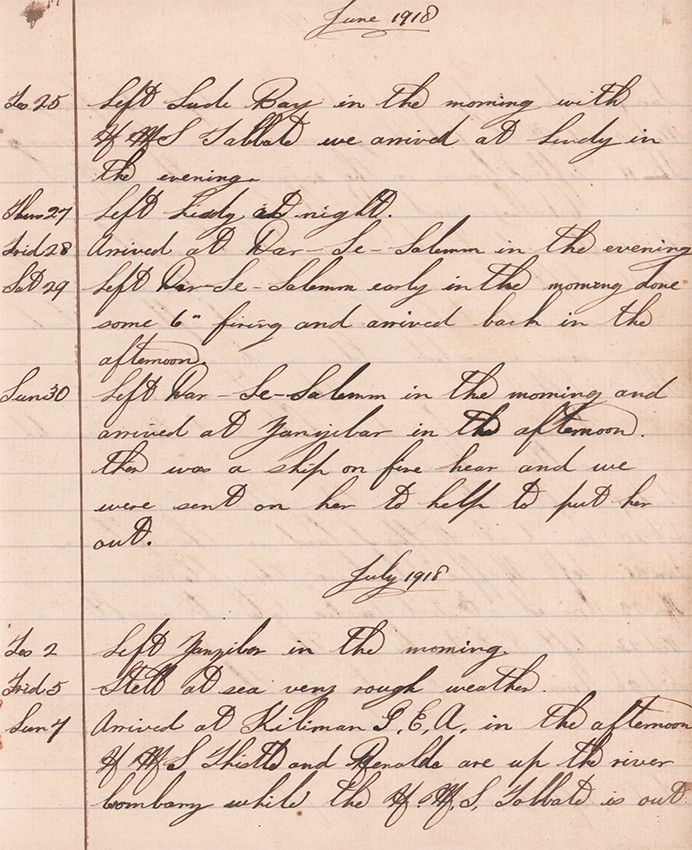 June 1918
Tes 25 Left Sude Bay in the morning with
H.M.S Talbate we arrived at Lindy in
the evening.
Thurs 27 Left Lindy at night.
Frid 28 Arrived at Dar-Se-Salemm in the evening
Sat 29 Left Dar-Se-Salemm early in the morning done
some 6" firing and arrived back in the
afternoon.
Sun 30 Left Dar-Se-Salemm in the morning and
arrived at Zanzibar in the afternoon.
ther was a ship on fire hear and we
were sent on her to help to put her
out.
July 1918
Tes 2 Left Zanzibar in the morning.
Frid 5 Still at sea very rough weather.
Sun 7 Arrived at Kiliman G.E.A. in the afternoon
H.M.S Thistle and Renalde are up the river
bombary while the H.M.S. Talbate is out